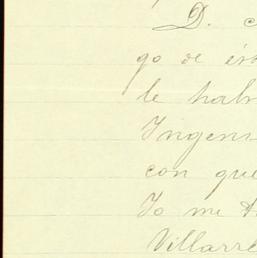 D. c
go de és
le habr
Ingeni
con que
Yo me
Villarre